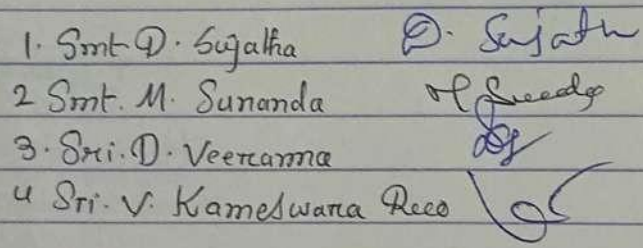 1. Smt D. Sujatha D. Sujath
2 Smt. M. Sunanda
3. Sri. D. Veeranna
4 Sri. V. Kameswara Rao